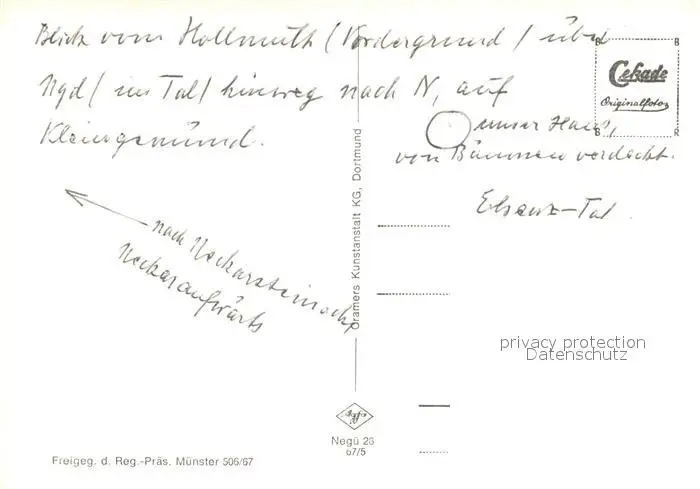 Blick vom Hollmuth (Vordergrund) über
Ngd (im Tal) hinweg nach N, auf
Kleingemünd.
unser Haus,
von Bäumen verdeckt.
Elsenz-Tal
nach Neckarsteinach,
Neckaraufwärts
Cekade
Originalfoto
B B
B R
Cramers Kunstanstalt KG, Dortmund
privacy protection
Datenschutz
Agfa
Negü 26
67/5
Freigeg. d. Reg.-Präs. Münster 506/67